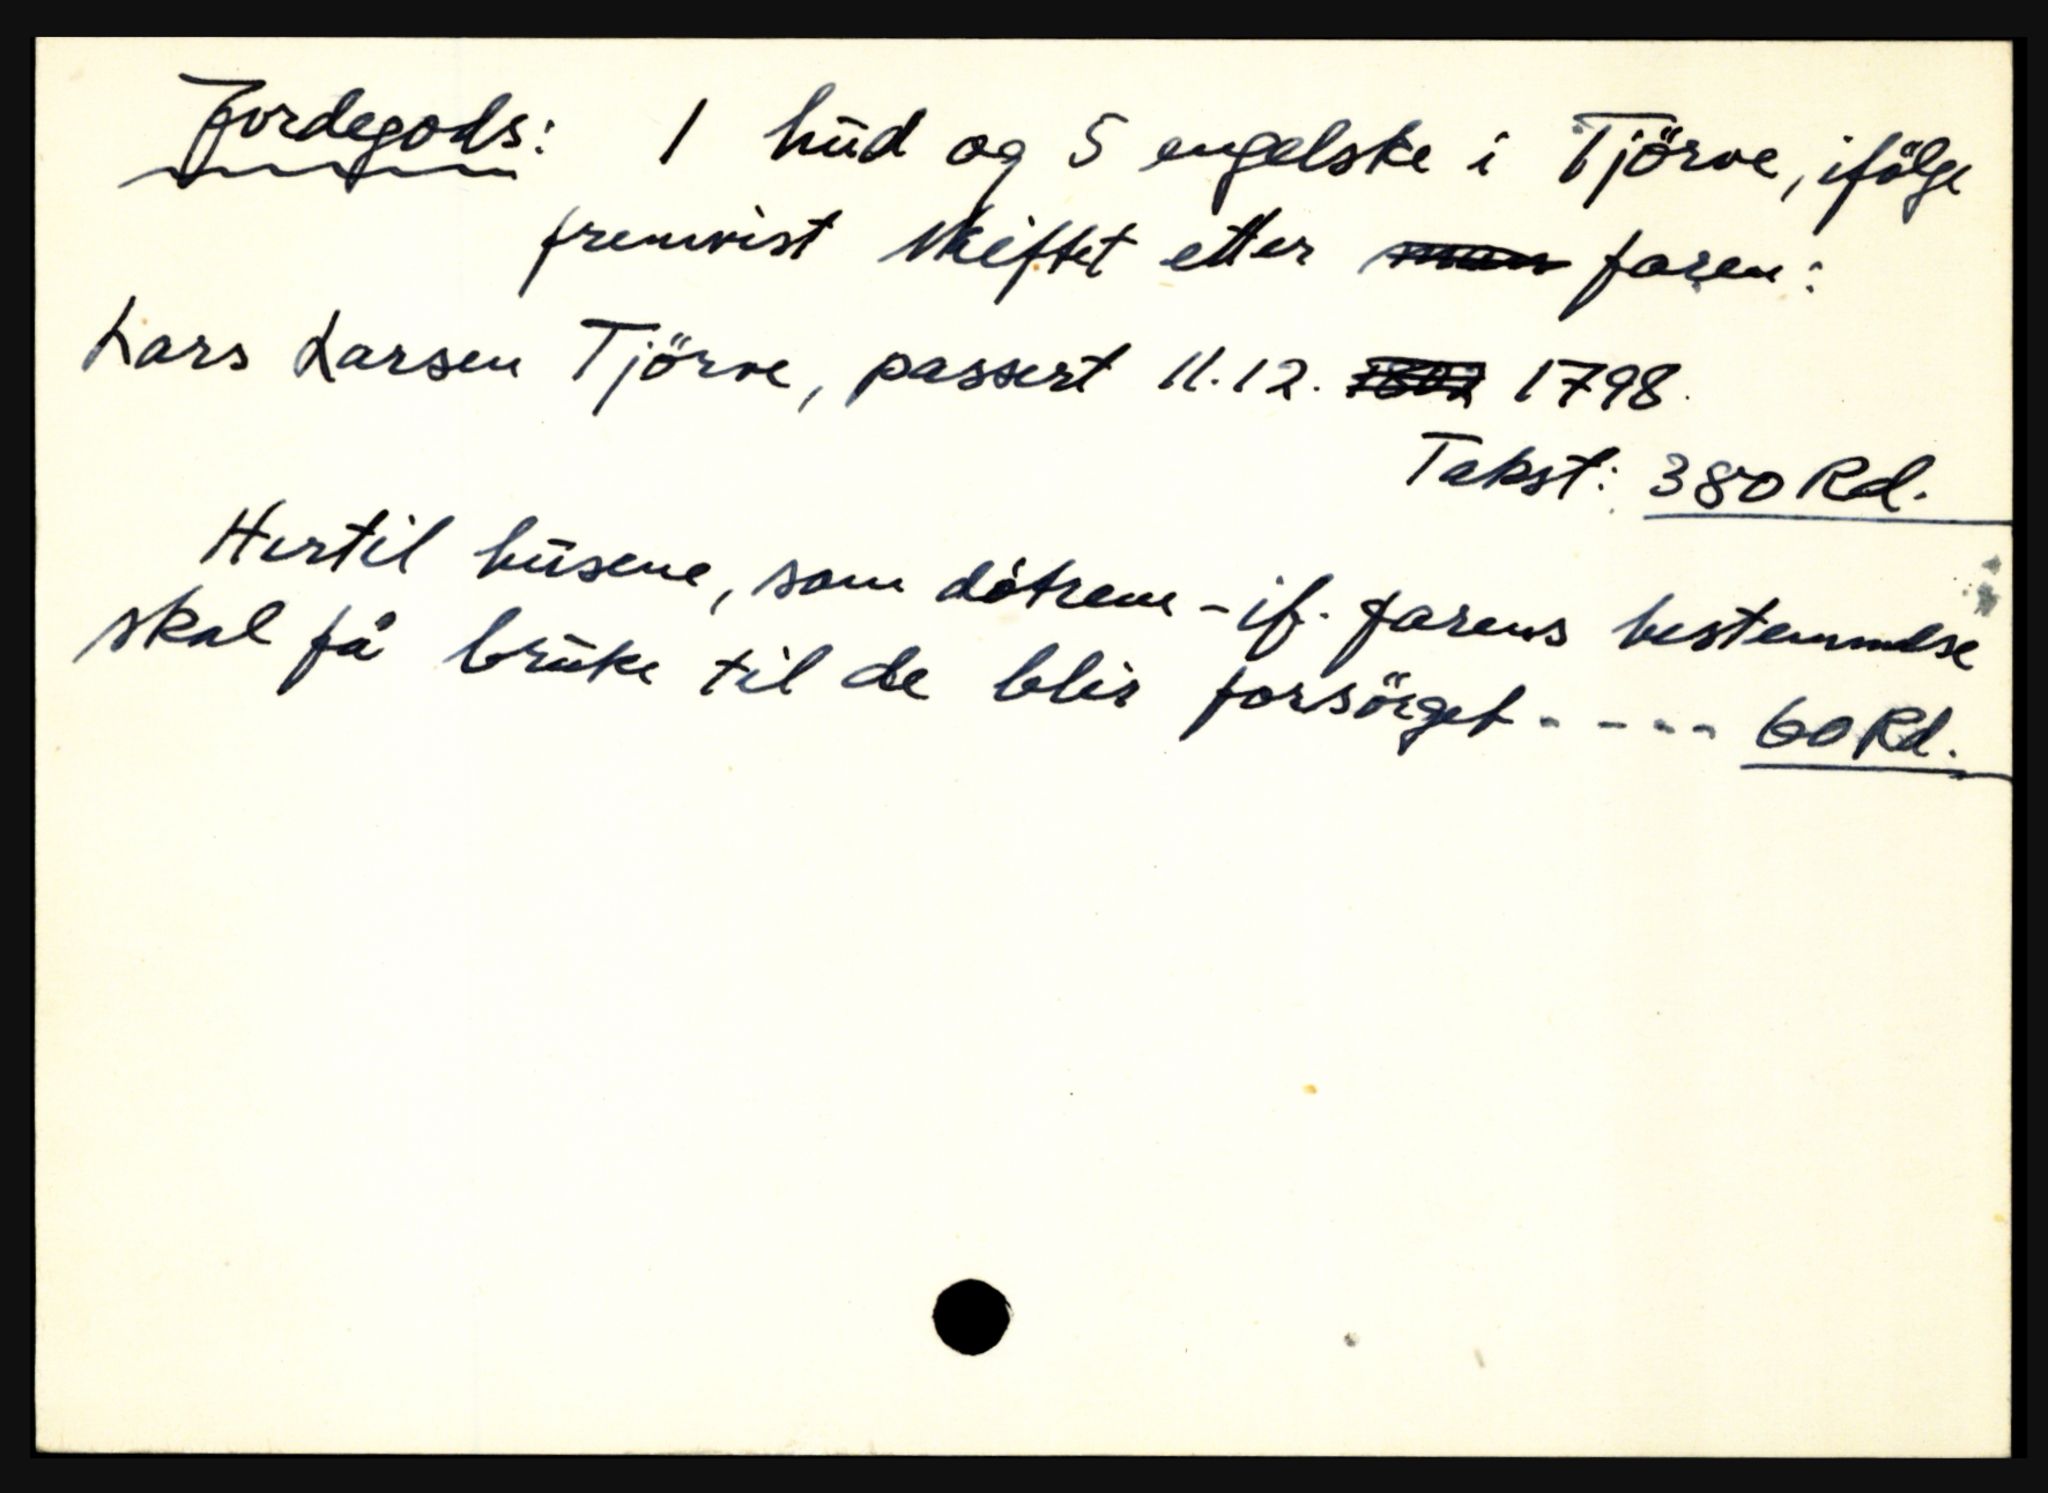 Jordegods: 1 hud og 5 engelske i Tjörve, ifölge
fremvist skiftet etter faren:
Lars Larsen Tjörve, passert 11.12. 1798.
Takst: 380 Rd.
Hertil husene, som dötrene - if. farens bestemmelse
skal få bruke til de blir forsörget - - - - 60 Rd.